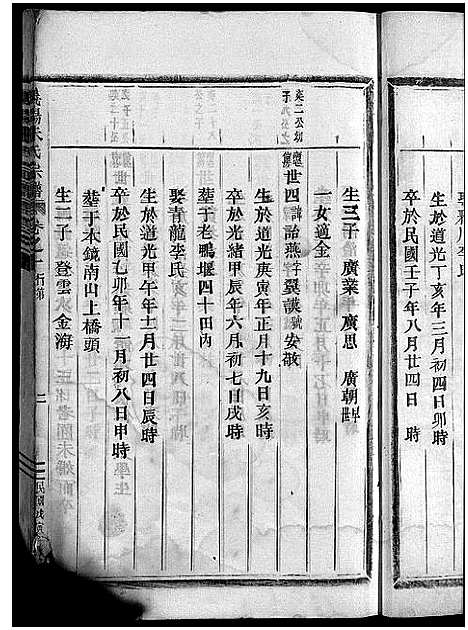 生於道光丁亥年三月初四日卯時
卒於民國壬子年八月廿四日 時
生三子 廣業 廣思 廣朝
一女適全
世四 諱詒燕字翼謨號安敬
生於道光庚寅年正月十九日亥時
卒於光緒甲辰年六月初七日戌時
塟于老鴨堰四十田內
娶青龍李氏
生於道光甲午年十二月廿四日辰時
卒於民國乙卯年十一月初八日申時
塟于木鏡南山上橋頭
生二子 登雲 金海